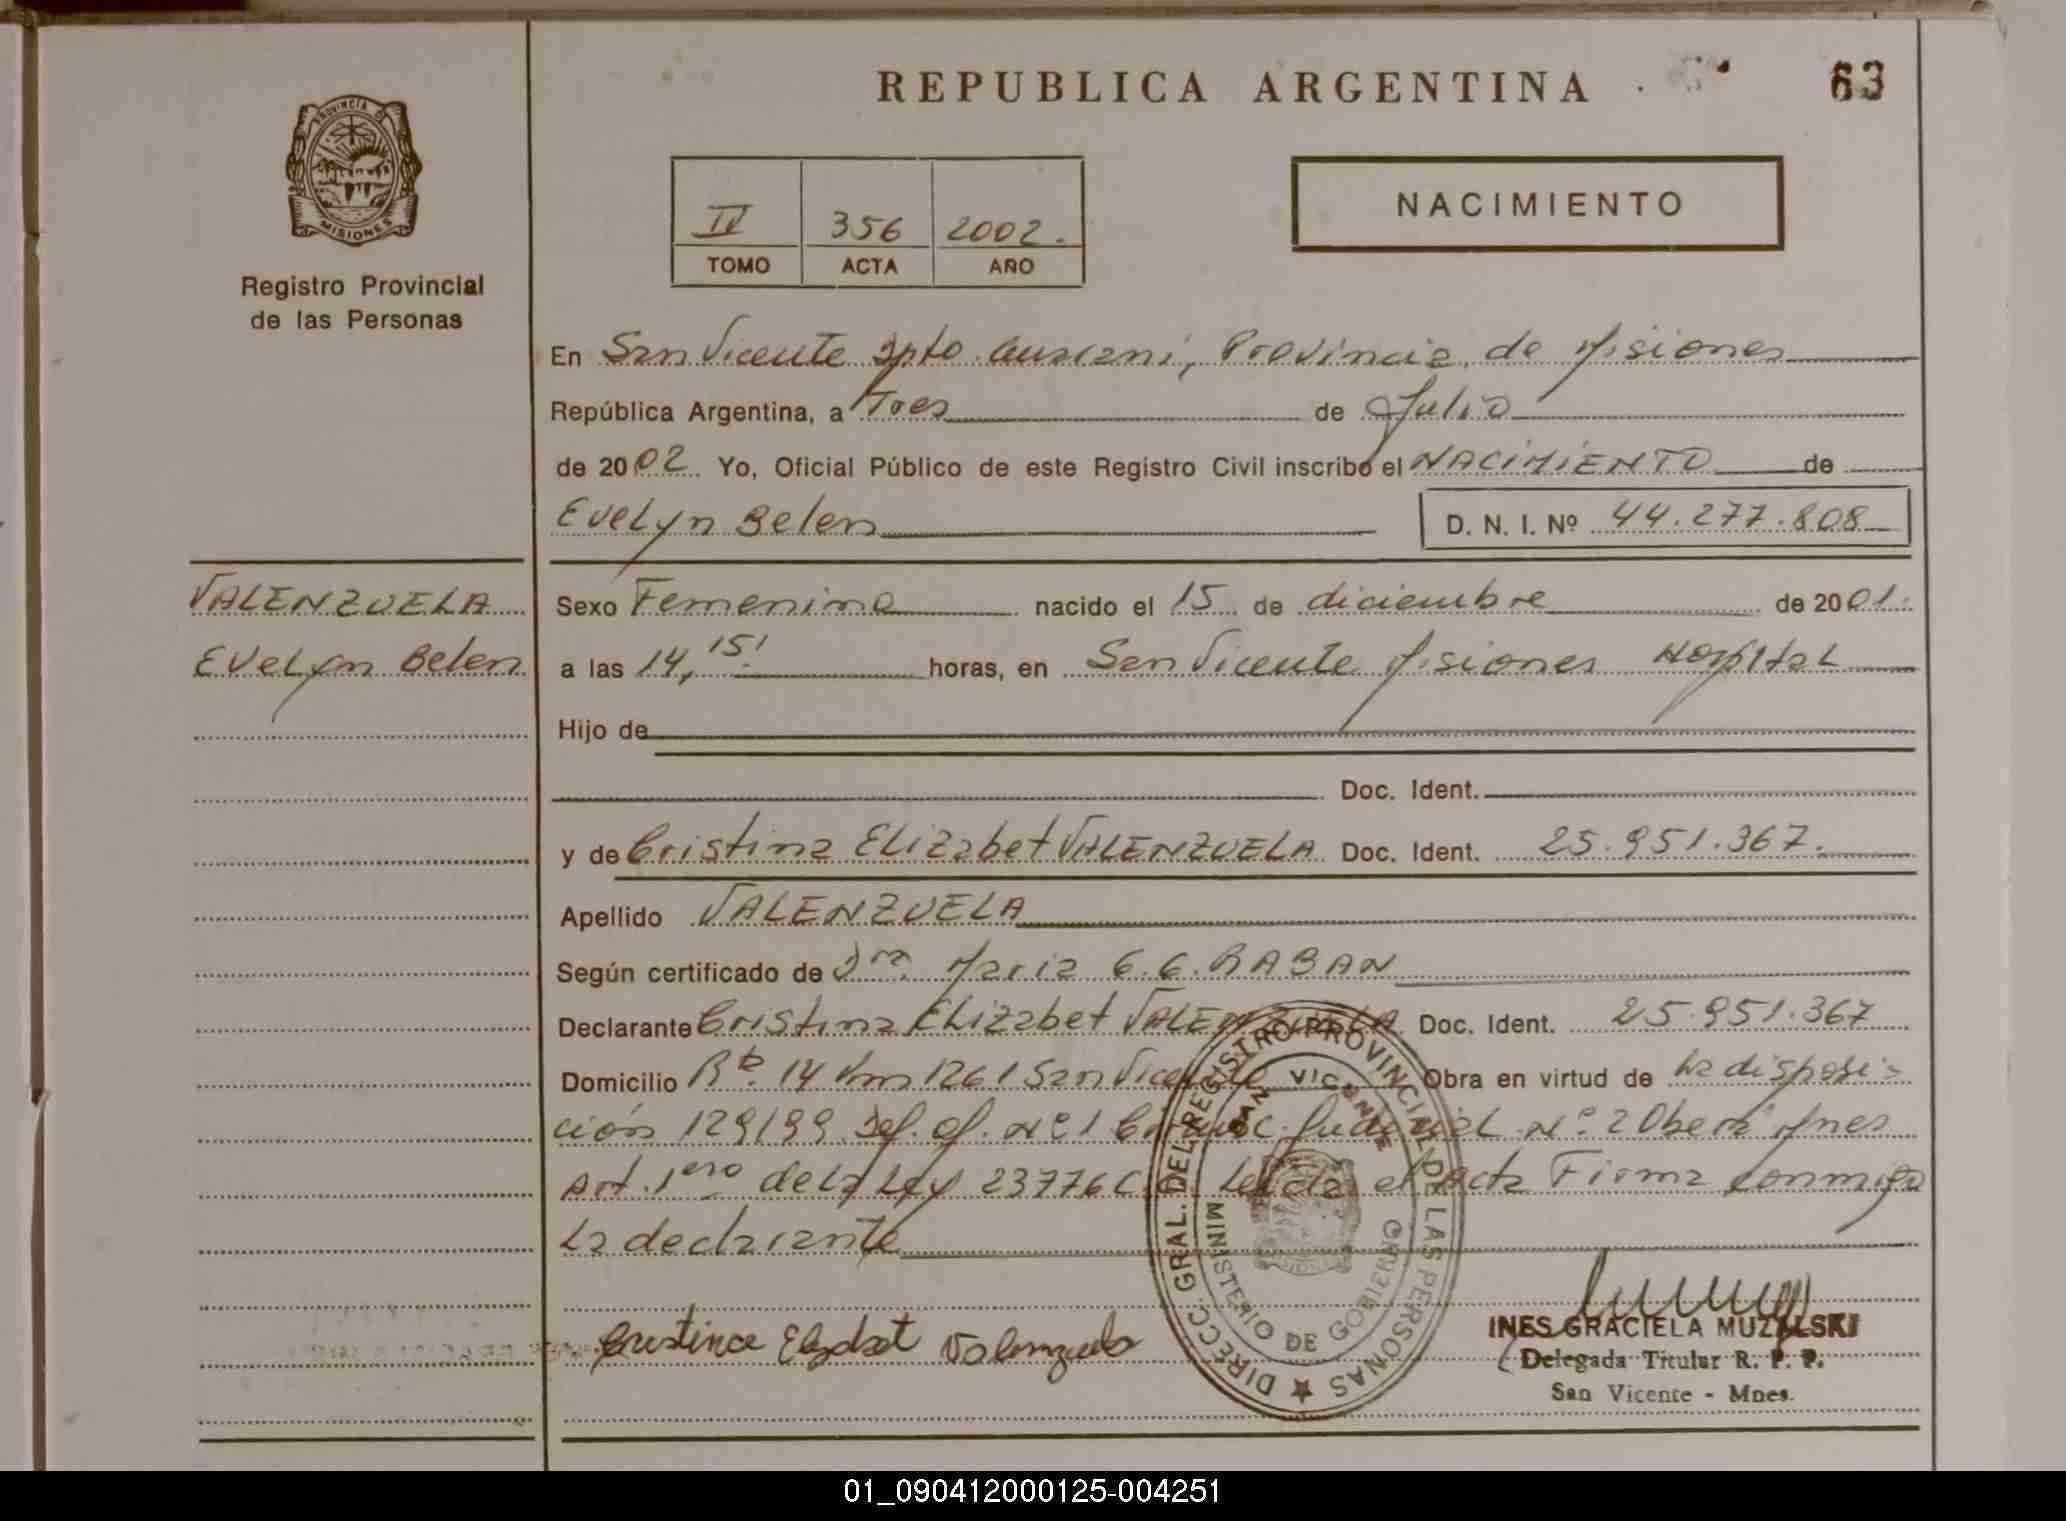 REPUBLICA ARGENTINA
63
PROVINCIA DE MISIONES
Registro Provincial
de las Personas
IV 356 2002.
TOMO ACTA AÑO
NACIMIENTO
En San Vicente Dpto. Guarani, Provincia de Misiones
República Argentina, a Tres de Julio
de 2002 Yo, Oficial Público de este Registro Civil inscribo el NACIMIENTO de
Evelyn Belen D. N. I. Nº 44.277.808
VALENZUELA
Evelyn Belen
Sexo Femenino nacido el 15 de diciembre de 2001.
a las 14,15' horas, en San Vicente Misiones Hospital
Hijo de
Doc. Ident.
y de Cristina Elizabet VALENZUELA Doc. Ident. 25.951.367.
Apellido VALENZUELA
Según certificado de Dra. Maria G.G. RABAN
Declarante Cristina Elizabet VALENZUELA Doc. Ident. 25.951.367
Domicilio Rta. 14 Km 1261 San Vicente Obra en virtud de la disposi-
ción 129/99 Def. Of. Nº 1 Circunsc. Judicial Nº 2 Obera Mnes
Art. 1ero de la Ley 23776 Leida el acta Firma conmigo
la declarante
Cristina Elizabet Valenzuela
DIRECC. GRAL. DEL REGISTRO PROVINCIAL DE LAS PERSONAS
SAN VICENTE
MINISTERIO DE GOBIERNO
INES GRACIELA MUZALSKI
Delegada Titular R. P. P.
San Vicente - Mnes.
01_090412000125-004251